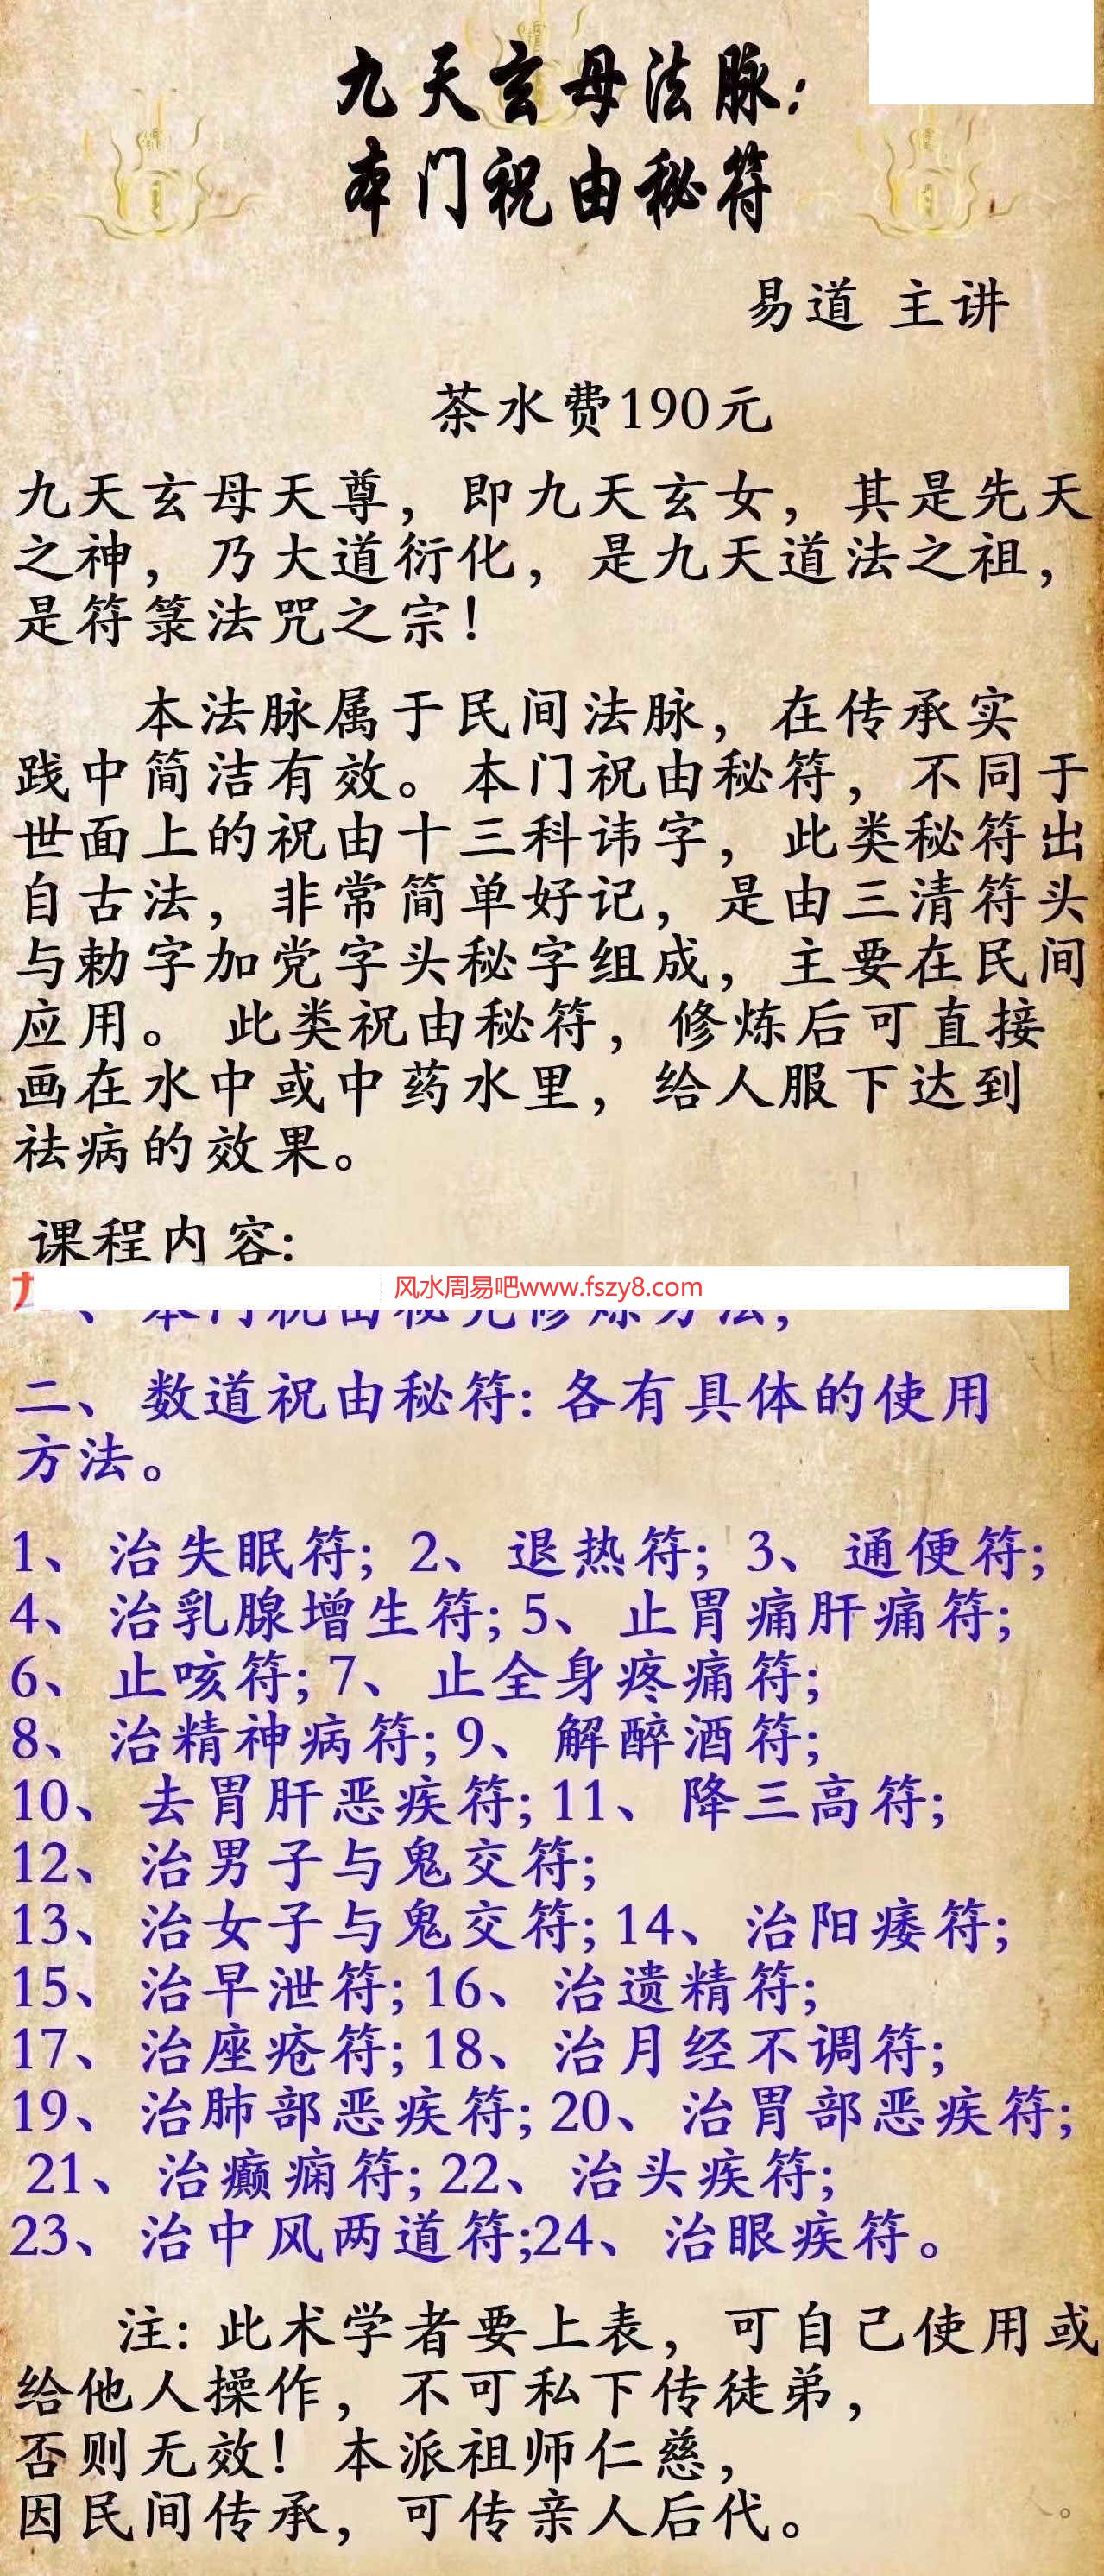 九天玄母法脉:
本门祝由秘符
易道 主讲
茶水费190元
九天玄母天尊，即九天玄女，其是先天
之神，乃大道衍化，是九天道法之祖，
是符箓法咒之宗！
本法脉属于民间法脉，在传承实
践中简洁有效。本门祝由秘符，不同于
世面上的祝由十三科讳字，此类秘符出
自古法，非常简单好记，是由三清符头
与勅字加党字头秘字组成，主要在民间
应用。 此类祝由秘符，修炼后可直接
画在水中或中药水里，给人服下达到
祛病的效果。
课程内容:
风水周易吧www.fszy8.com
、本门祝由秘咒修炼方法；
二、数道祝由秘符: 各有具体的使用
方法。
1、治失眠符; 2、退热符; 3、通便符;
4、治乳腺增生符; 5、止胃痛肝痛符;
6、止咳符; 7、止全身疼痛符;
8、治精神病符; 9、解醉酒符;
10、去胃肝恶疾符; 11、降三高符;
12、治男子与鬼交符;
13、治女子与鬼交符; 14、治阳痿符;
15、治早泄符; 16、治遗精符;
17、治座疮符; 18、治月经不调符;
19、治肺部恶疾符; 20、治胃部恶疾符;
21、治癫痫符; 22、治头疾符;
23、治中风两道符;24、治眼疾符。
注: 此术学者要上表，可自己使用或
给他人操作，不可私下传徒弟，
否则无效！本派祖师仁慈，
因民间传承，可传亲人后代。